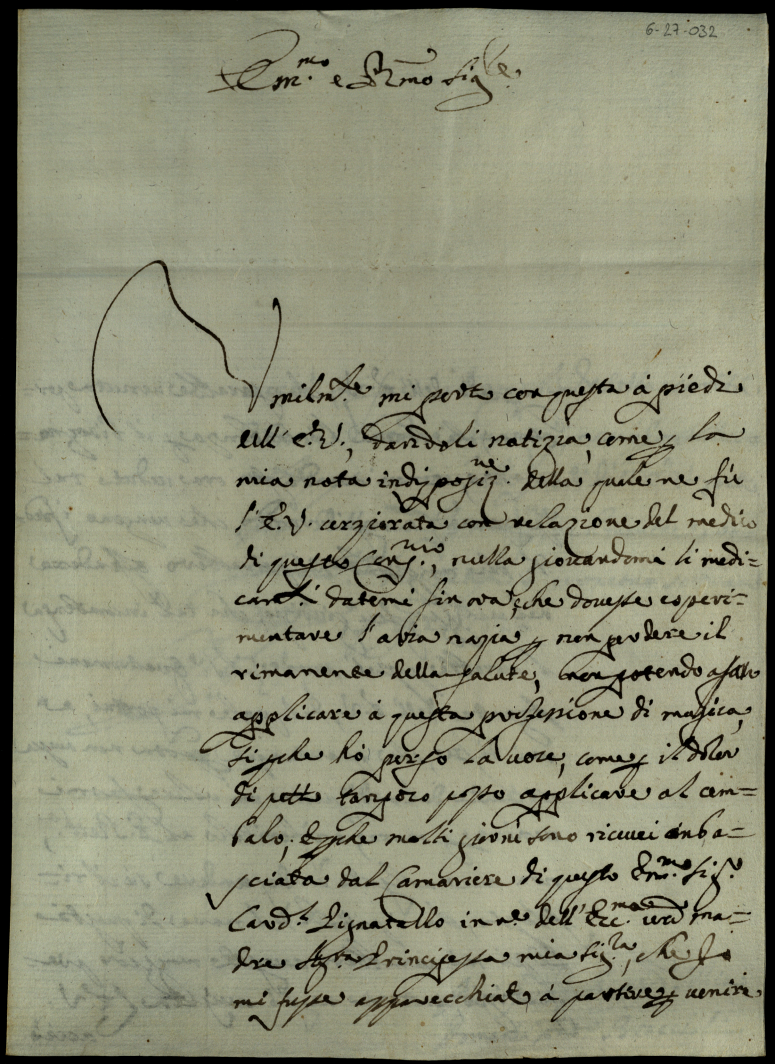 6-27-032
Em.mo e R.mo Sig.re
Vmilm.te mi porto con questa à piedi
dell' E.V., dandoli notizia, come p la
mia nota indisposiz.ne della quale ne fù
l'E.V. cerziorata con relazione del medico
di questo Con.rio, nulla giouandomi li medi=
cam.ti datemi sin ora, che douesse esperi=
mentare l'aria nazia p non perdere il
rimanente della salute, non potendo
applicare à questa professione di musica,
si che hò perso la uoce, come p il dolor
di petto tanpoco posso applicare al cem=
balo; che molti giorni sono riceuei enba=
sciata dal Camariere di questo Em.mo Sig.r
Card.l Pignatello in n.e dell' Ecc.ma ma=
dre Sig.ra Principessa mia Sig.ra, che Jo
mi fusse apparecchiato à partire p uenire